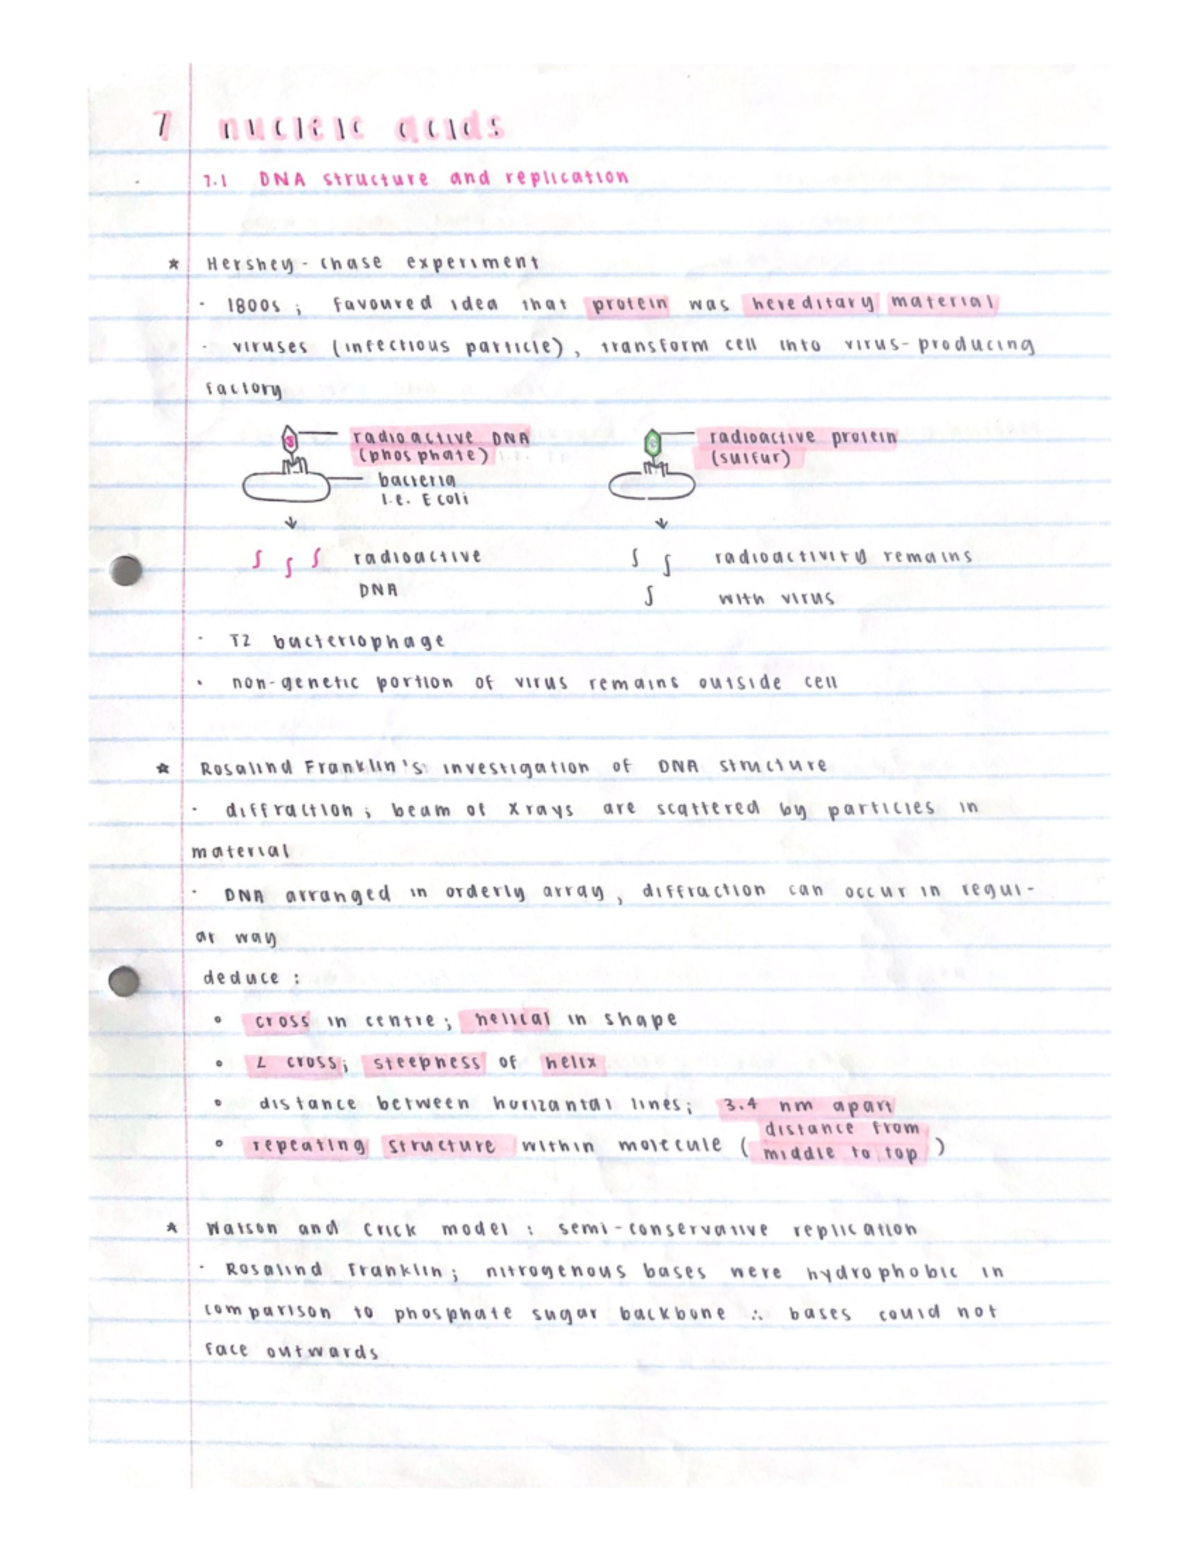 7 nucleic acids
7.1 DNA structure and replication
* Hershey-chase experiment
· 1800s ; favoured idea that protein was hereditary material
· viruses (infectious particle), transform cell into virus-producing
factory
radioactive DNA
(phosphate)
bacteria
i.e. E coli
radioactive protein
(sulfur)
radioactive
DNA
radioactivity remains
with virus
· T2 bacteriophage
· non-genetic portion of virus remains outside cell
* Rosalind Franklin's investigation of DNA structure
· diffraction ; beam of X rays are scattered by particles in
material
· DNA arranged in orderly array, diffraction can occur in regul-
ar way
deduce :
∘ cross in centre ; helical in shape
∘ ∠ cross ; steepness of helix
∘ distance between horizantal lines ; 3.4 nm apart
∘ repeating structure within molecule (distance from
middle to top)
* Watson and Crick model : semi-conservative replication
· Rosalind Franklin ; nitrogenous bases were hydrophobic in
comparison to phosphate sugar backbone ∴ bases could not
face outwards